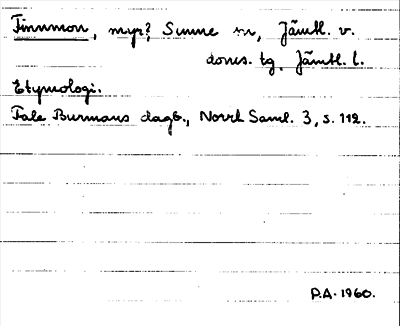 Finnmon, myr? Sunne sn, Jämtl. v.
doms. tg. Jämtl. l.
Etymologi.
Fale Burmans dagb., Norrl Saml. 3, s. 112.
P.A. 1960.